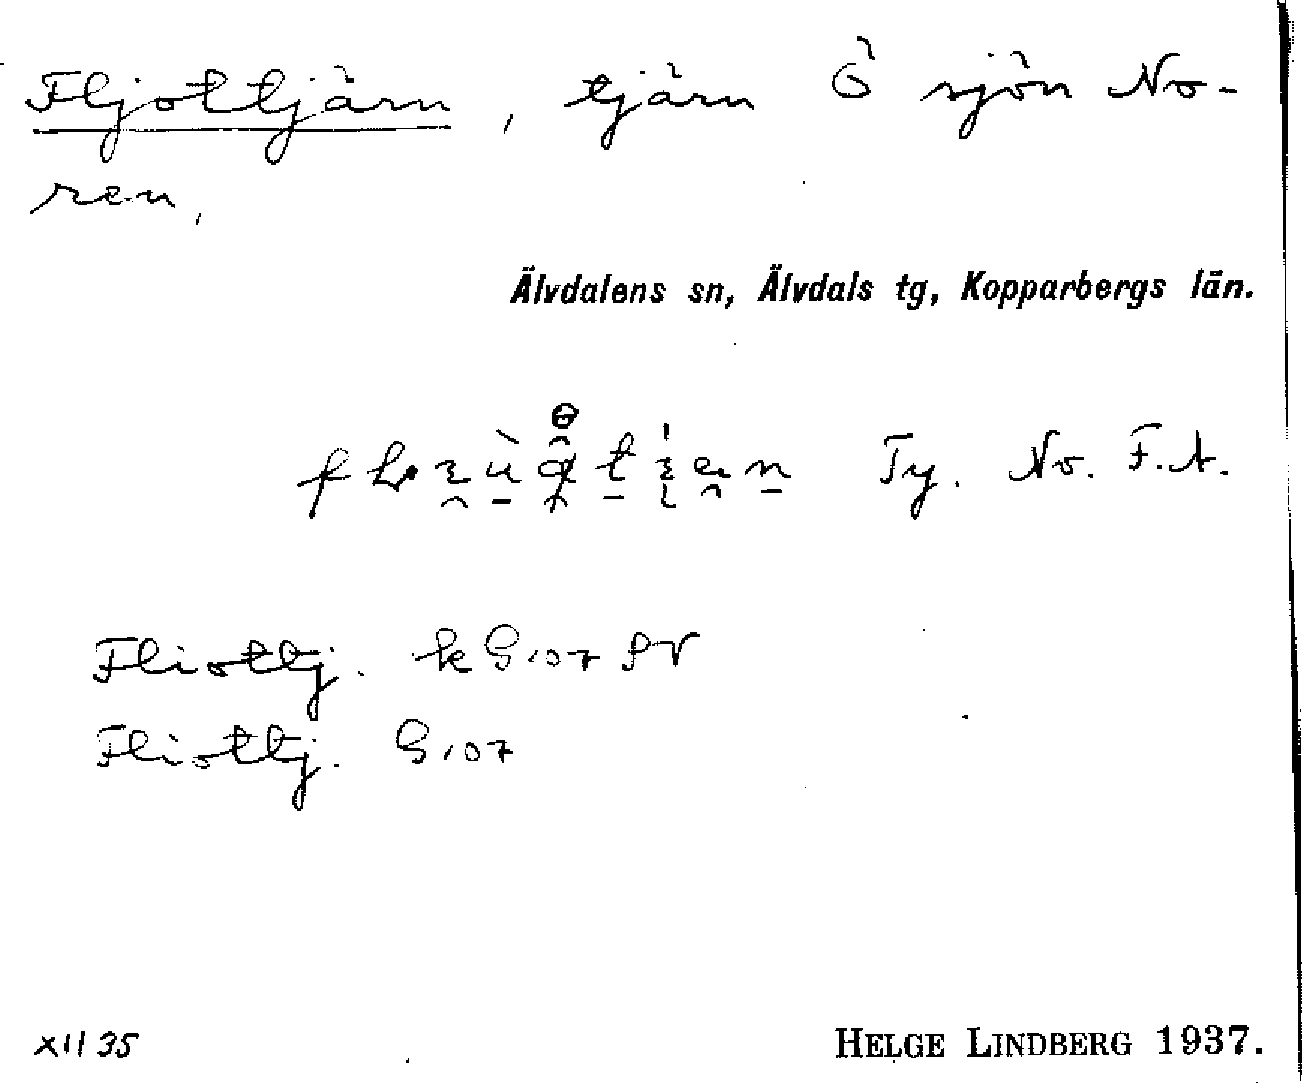 Fljottjärn, tjärn Ö sjön No-
ren,
Älvdalens sn, Älvdals tg, Kopparbergs län.
Ty. No. F.A.
Fliottj. k G 107 SV
Fliottj. G 107
XII 35 HELGE LINDBERG 1937.